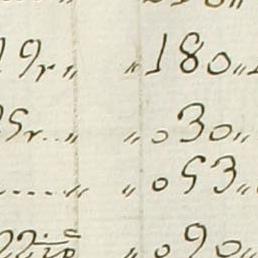 19r „ „180„
5r..„ „030„
....„ „053„
22 „090„